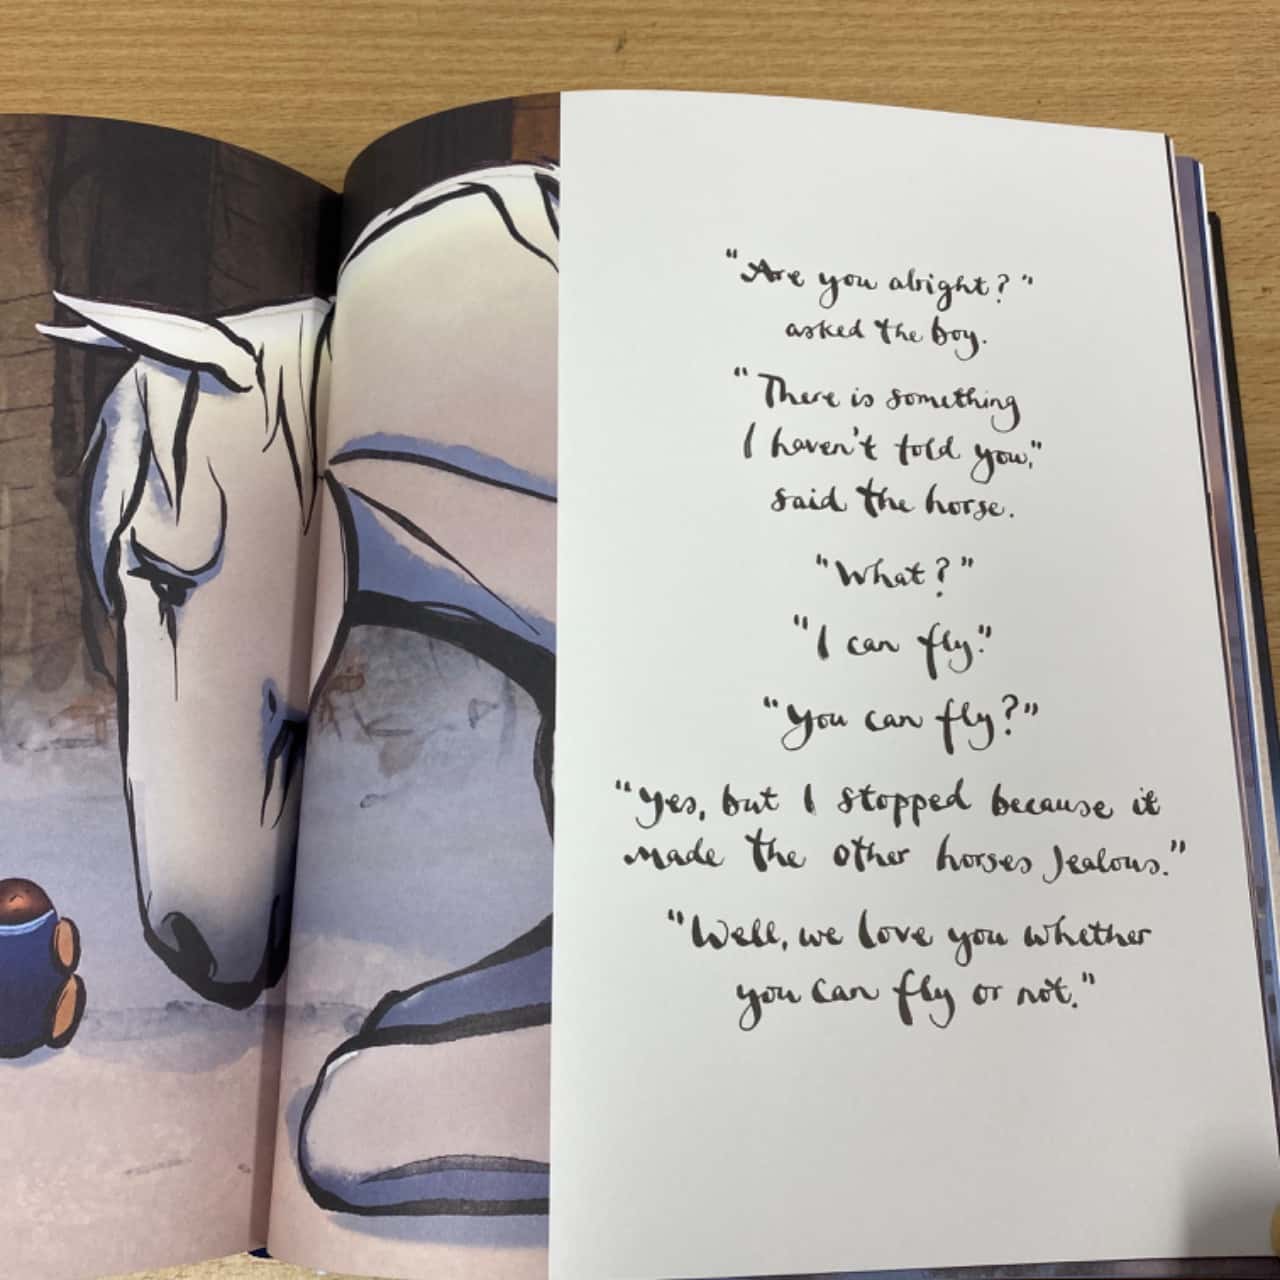 "Are you alright?"
asked the boy.
"There is something
I haven't told you,"
said the horse.
"What?"
"I can fly."
"You can fly?"
"Yes, but I stopped because it
made the other horses jealous."
"Well, we love you whether
you can fly or not."